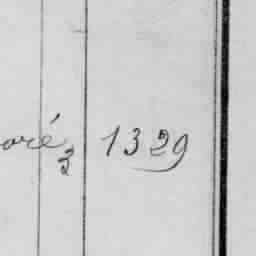 oré 3 1329